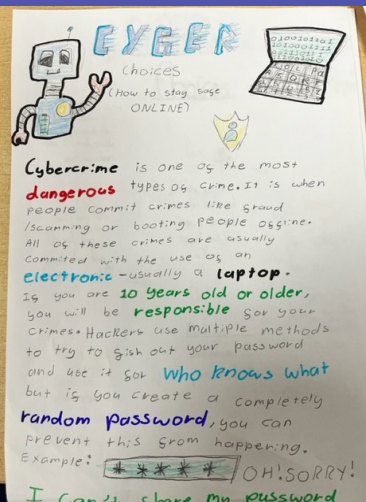 CYBER
Choices
(How to stay safe
ONLINE)
Cybercrime is one of the most
dangerous types of crime. It is when
people commit crimes like fraud
/scamming or booting people offline.
All of these crimes are usually
commited with the use of an
electronic - usually a laptop.
If you are 10 years old or older,
you will be responsible for your
crimes. Hackers use multiple methods
to try to fish out your password
and use it for who knows what
but if you create a completely
random password, you can
prevent this from happening.
Example: * * * * * OH! SORRY!
I can't share my password